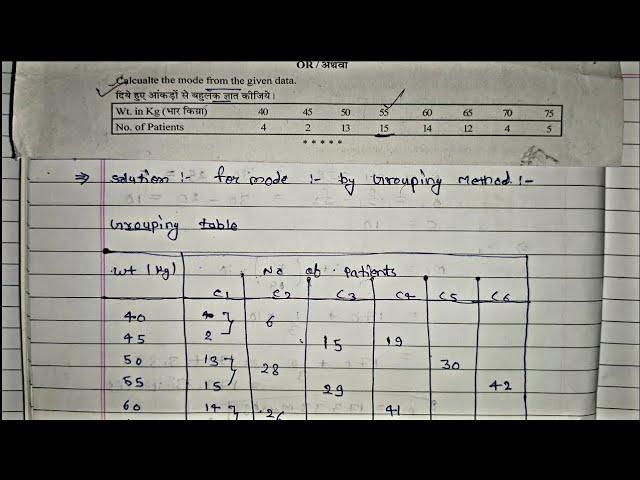 OR / अथवा
Calcualte the mode from the given data.
दिये हुए आंकड़ों से बहुलक ज्ञात कीजिये।
Wt. in Kg (भार किग्रा) 40 45 50 55 60 65 70 75
No. of Patients 4 2 13 15 14 12 4 5
* * * * *
⇒ Solution :- for mode :- by Grouping Method :-
Grouping table
wt (Kg) No of Patients
C1 C2 C3 C4 C5 C6
40 4 6
45 2 15 19
50 13 28 30
55 15 29 42
60 14 26 41